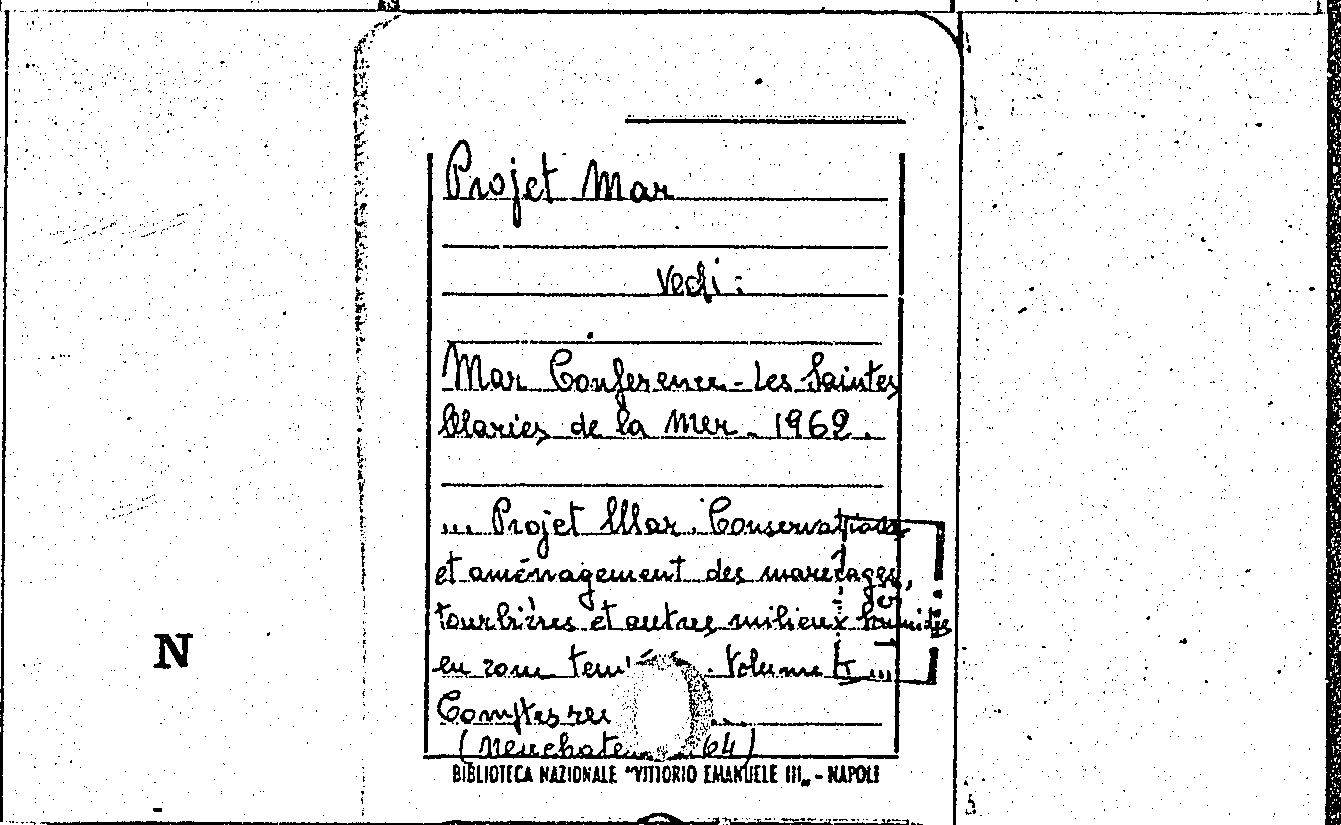 Projet Mar
vedi:
Mar Conference - Les Saintes
Maries de la Mer. 1962.
... Projet Mar. Conservation
et aménagement des marécages,
tourbières et autres milieux humides
en zone Volume I ...
Comptes
N
BIBLIOTECA NAZIONALE "VITTORIO EMANUELE III„ - NAPOLI